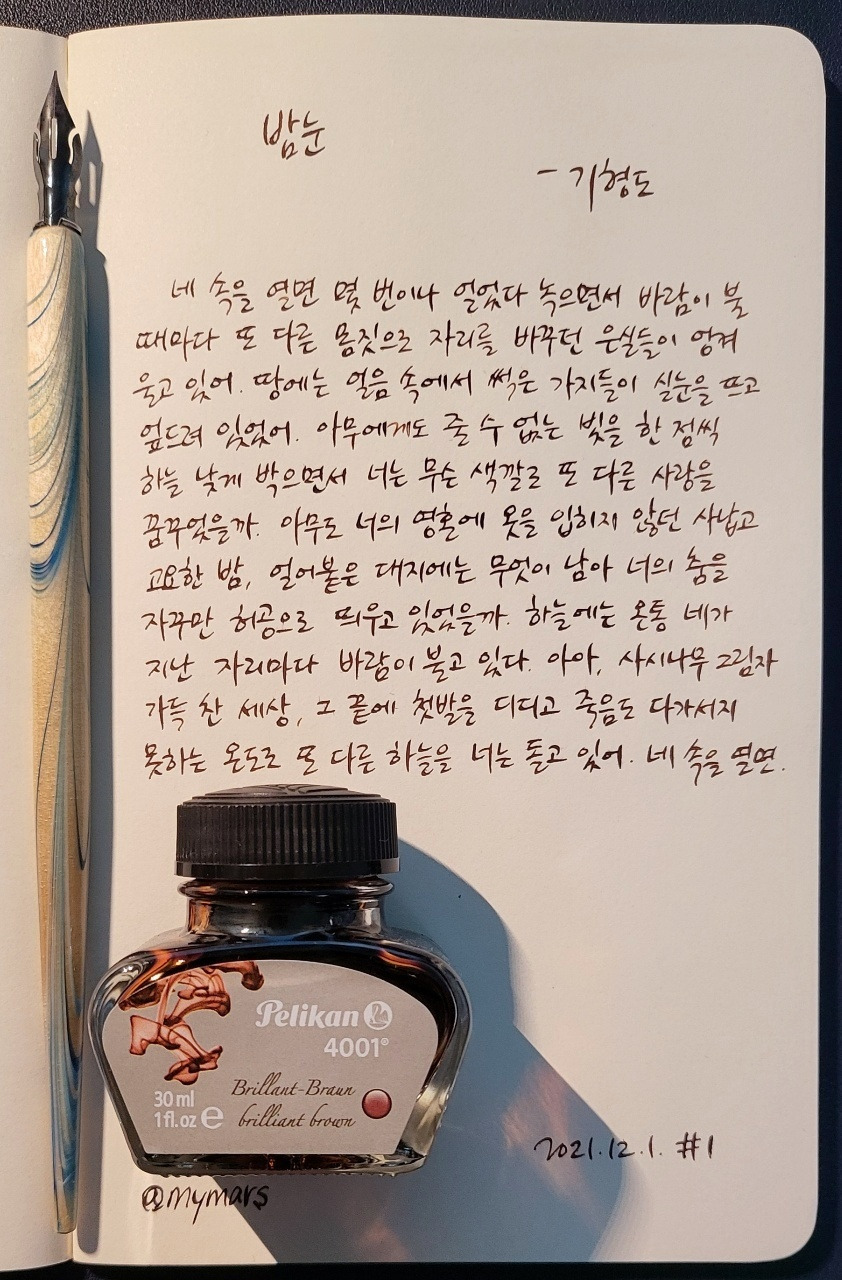 밤눈
- 기형도
네 속을 열면 몇 번이나 얼었다 녹으면서 바람이 불
때마다 또 다른 몸짓으로 자리를 바꾸던 은실들이 엉켜
울고 있어. 땅에는 얼음 속에서 썩은 가지들이 실눈을 뜨고
엎드려 있었어. 아무에게도 줄 수 없는 빛을 한 점씩
하늘 낮게 박으면서 너는 무슨 색깔로 또 다른 사랑을
꿈꾸었을까. 아무도 너의 영혼에 옷을 입히지 않던 사납고
고요한 밤, 얼어붙은 대지에는 무엇이 남아 너의 춤을
자꾸만 허공으로 띄우고 있었을까. 하늘에는 온통 네가
지난 자리마다 바람이 불고 있다. 아아, 사시나무 그림자
가득 찬 세상, 그 끝에 첫발을 디디고 죽음도 다가서지
못하는 온도로 또 다른 하늘을 너는 돌고 있어. 네 속을 열면.
Pelikan
4001®
30 ml
1 fl.oz e
Brillant-Braun
brilliant brown
2021.12.1. #1
@mymars